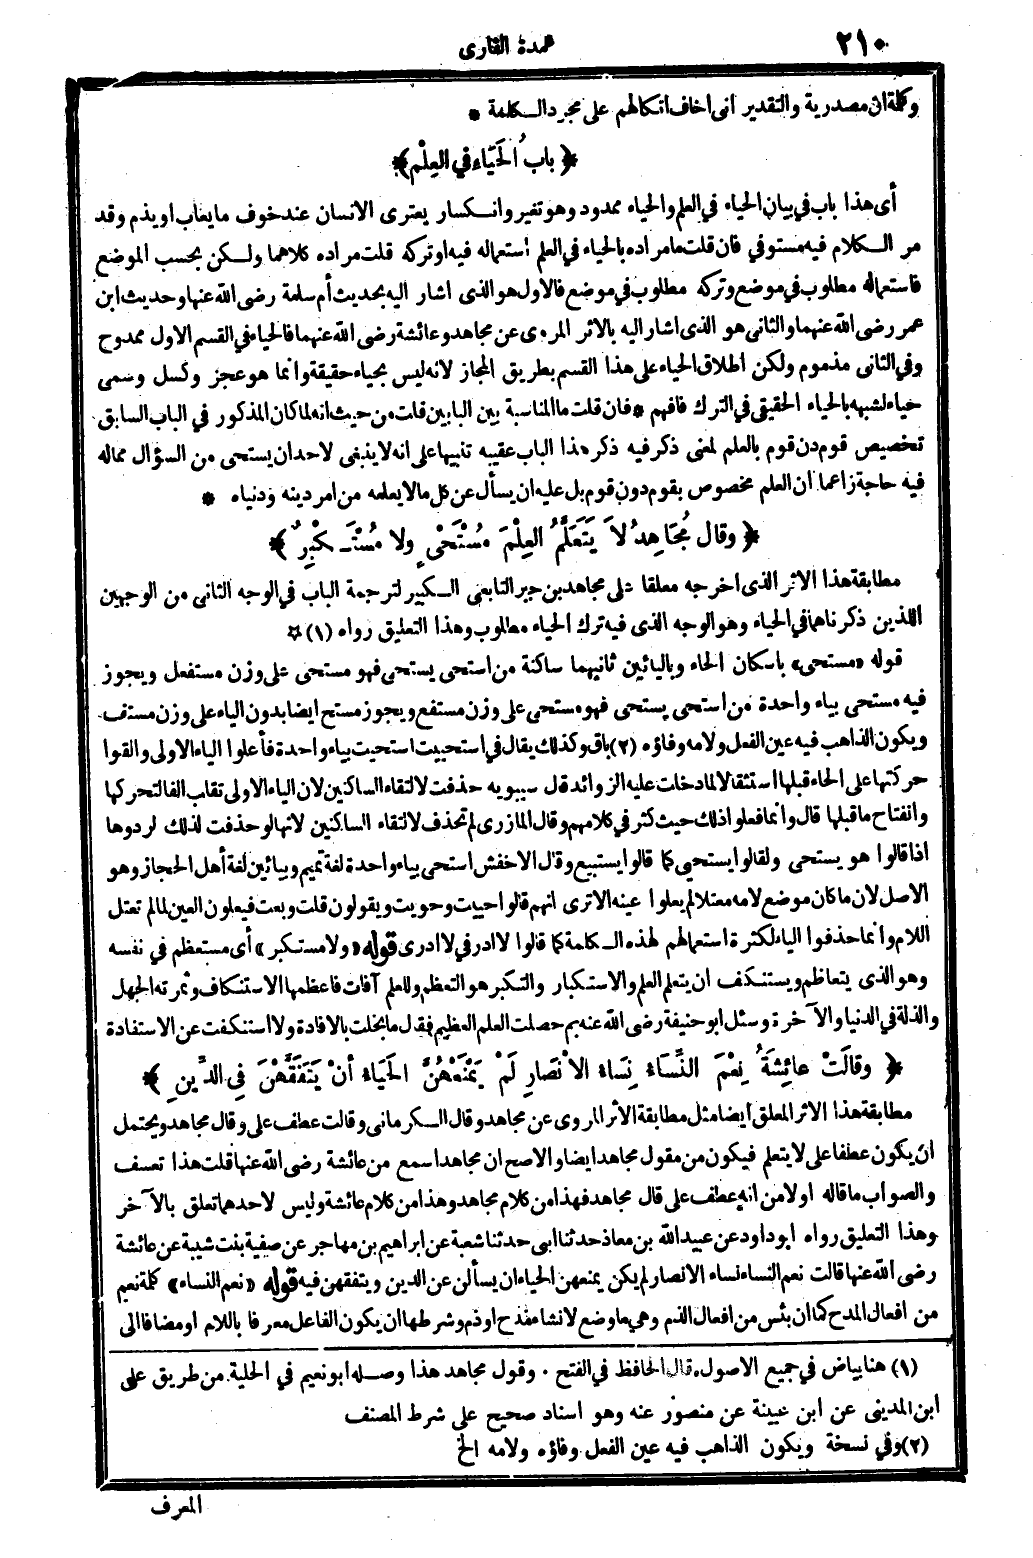 ٢١٠
عمدة القارى
وكلة ان مصدرية والتقدير انى اخاف اتكالهم على مجرد الكلمة *
﴿ بابُ الحَيَاء في العِلْمِ ﴾
أى هذا باب في بيان الحياء في العلم والحياء ممدود وهو تغير وانكسار يعترى الانسان عند خوف ما يعاب او يذم وقد
مر الكلام فيه مستوفي فان قلت ما مراده بالحياء في العلم استعماله فيه او تركه قلت مراده كلاهما ولكن بحسب الموضع
فاستعماله مطلوب في موضع وتركه مطلوب في موضع فالاول هو الذى اشار اليه بحديث أم سلمة رضى الله عنها وحديث ابن
عمر رضى الله عنهما والثانى هو الذى اشار اليه بالاثر المروى عن مجاهد وعائشة رضى الله عنهما فالحياء في القسم الاول ممدوح
وفي الثانى مذموم ولكن اطلاق الحياء على هذا القسم بطريق المجاز لانه ليس بحياء حقيقة وانما هو عجز وكسل وسمى
حياء لشبهه بالحياء الحقيقى في الترك فافهم * فان قلت ما المناسبة بين البابين قلت من حيث انه لما كان المذكور في الباب السابق
تخصيص قوم دن قوم بالعلم لمعنى ذكر فيه ذكر هذا الباب عقيبه تنبيها على انه لا ينبغى لاحد ان يستحى من السؤال مما له
فيه حاجة زاعما ان العلم مخصوص بقوم دون قوم بل عليه ان يسأل عن كل ما لا يعلمه من امر دينه ودنياه *
﴿ وقال مُجَاهِدٌ لاَ يَتَعَلَّمُ العِلْمَ مُسْتَحْيٍ ولا مُسْتَكْبِرٌ ﴾
مطابقة هذا الاثر الذى اخرجه معلقا على مجاهد بن جبر التابعى الكبير لترجمة الباب في الوجه الثانى من الوجهين
اللذين ذكرناهما في الحياء وهو الوجه الذى فيه ترك الحياء مطلوب وهذا التعليق رواه (١) ☆
قوله «مستحى» باسكان الحاء وباليائين ثانيهما ساكنة من استحى يستحى فهو مستحى على وزن مستفعل ويجوز
فيه مستحى بياء واحدة من استحى يستحى فهو مستحى على وزن مستفع ويجوز مستح ايضا بدون الياء على وزن مستف
ويكون الذاهب فيه عين الفعل ولامه وفاؤه (٢) باق وكذلك يقال في استحييت استحيت بياء واحدة فأعلوا الياء الاولى والقوا
حركتها على الحاء قبلها استثقالا لما دخلت عليه الزوائد قال سيبويه حذفت لالتقاء الساكنين لان الياء الاولى تقلب الفا لتحركها
وانفتاح ما قبلها قال وانما فعلوا ذلك حيث كثر في كلامهم وقال المازرى لم تحذف لالتقاء الساكنين لانها لو حذفت لذلك لردوها
اذا قالوا هو يستحى ولقالوا يستحيى كما قالوا يستبيع وقال الاخفش استحى بياء واحدة لغة تميم وبيائين لغة أهل الحجاز وهو
الاصل لان ما كان موضع لامه معتلا لم يعلوا عينه الا ترى انهم قالوا احييت وحويت ويقولون قلت وبعت فيعلون العين لما لم تعتل
اللام وانما حذفوا الياء لكثرة استعمالهم لهذه الكلمة كما قالوا لا ادر في لا ادرى قوله «ولا مستكبر» أى مستعظم في نفسه
وهو الذى يتعاظم ويستنكف ان يتعلم العلم والاستكبار والتكبر هو التعظم وللعلم آفات فاعظمها الاستنكاف وثمرته الجهل
والذلة في الدنيا والآخرة وسئل ابو حنيفة رضى الله عنه بم حصلت العلم العظيم فقال ما بخلت بالافادة ولا استنكفت عن الاستفادة
﴿ وقالَتْ عائِشَةُ نِعْمَ النِّسَاء نِسَاء الاَنْصَارِ لَمْ يَمْنَعْهُنَّ الحَيَاء أنْ يَتَفَقَّهْنَ فِي الدِّينِ ﴾
مطابقة هذا الاثر المعلق ايضا مثل مطابقة الأثر المروى عن مجاهد وقال الكرمانى وقالت عطف على وقال مجاهد ويحتمل
ان يكون عطفا على لا يتعلم فيكون من مقول مجاهد ايضا والاصح ان مجاهدا سمع من عائشة رضى الله عنها قلت هذا تعسف
والصواب ما قاله اولا من انه عطف على قال مجاهد فهذا من كلام مجاهد وهذا من كلام عائشة وليس لاحدهما تعلق بالآخر
وهذا التعليق رواه ابو داود عن عبيد الله بن معاذ حدثنا ابى حدثنا شعبة عن ابراهيم بن مهاجر عن صفية بنت شيبة عن عائشة
رضى الله عنها قالت نعم النساء نساء الانصار لم يكن يمنعهن الحياء ان يسألن عن الدين ويتفقهن فيه قوله «نعم النساء» كلمة نعم
من افعال المدح كما ان بئس من افعال الذم وهى ما وضع لانشاء مدح او ذم وشرطها ان يكون الفاعل معرفا باللام او مضافا الى
(١) هنا بياض في جميع الاصول. قال الحافظ في الفتح ٠ وقول مجاهد هذا وصله ابو نعيم في الحلية من طريق على
ابن المدينى عن ابن عيينة عن منصور عنه وهو اسناد صحيح على شرط المصنف
(٢) وفي نسخة ويكون الذاهب فيه عين الفعل وفاؤه ولامه الخ
المعرف